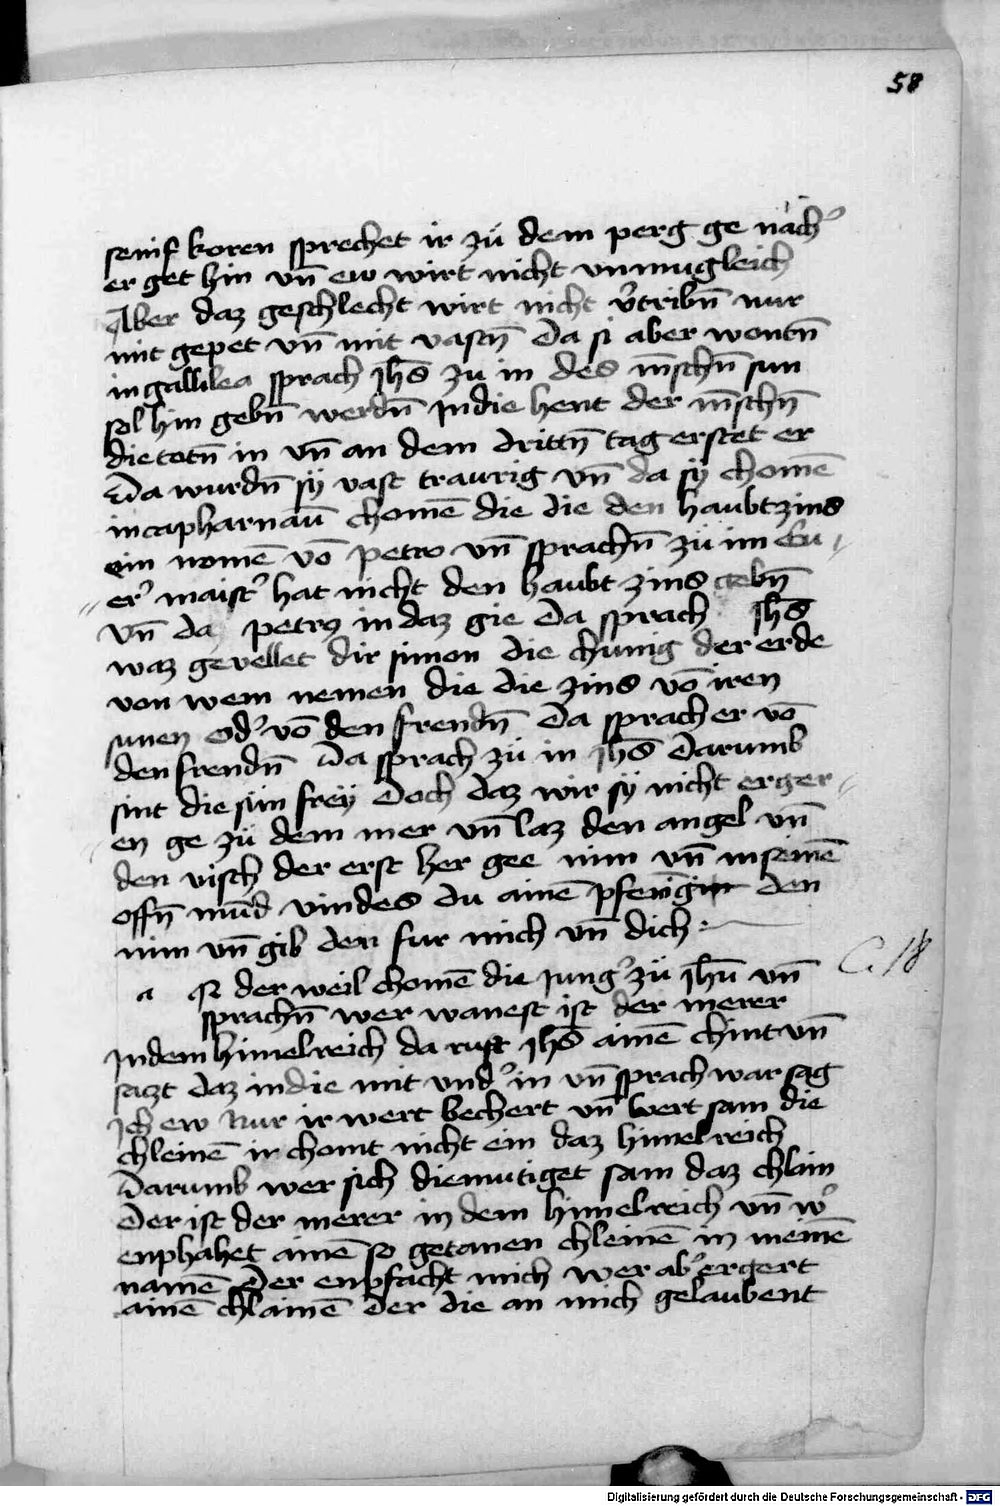 58
senif koren sprechet ir zů dem perg ge nach᾽
er get hin vn̄ ew wirt nicht vnmugleich
Aber daz geschlecht wirt nicht v᾽tribn̄ nur
mit gepet vn̄ mit vastn̄ Da si aber wontn̄
in gallilea sprach Jhs̄ zu in des m̄schn̄ sun
sol hin gebn̄ werdn̄ in die hent der m̄schn̄
die totn̄ in vn̄ an dem drittn̄ tag erstet er
Da wurdn̄ sÿ vast traurig vn̄ da sÿ chomē
in capharnaū chomē die die den haubtzins
ein nomē vō petro vn̄ sprachn̄ zů im Eu
er᾽ maist᾽ hat nicht den haubt zins gebn̄
vn̄ da petrꝰ in daz gie Da sprach Jhs̄
waz gevellet dir simon die chunig der erde
von wem nemen die die zins vō iren
sunen od᾽ vō den fremdn̄ Da sprach er vō
den fremdn̄ Da sprach zů in Jhs̄ Darumb
sint die sün freÿ Doch daz wir sÿ nicht erger
en ge zů dem mer vn̄ laz den angel vn̄
den visch der erst her gee nim vn̄ in seinē
offn̄ mūd vindes du ainē pfening den
nim vn̄ gib den fur mich vn̄ dich :
C. 18
a In der weil chomē die Jung᾽ zů Jhū vn̄
sprachn̄ wer wanest ist der merer
In dem himelreich da ruft Jhs̄ ainē chint vn̄
satzt daz in die mit vnd᾽ in vn̄ sprach war sag
Ich ew Nur ir wert bechert vn̄ wert sam die
chleinē ir chomt nicht ein daz himelreich
Darumb wer sich diemutiget sam daz chlain
Der ist der merer in dem himelreich vn̄ w᾽
enphahet ainē so getanen chleinē in meinē
namē Der enpfacht mich wer ab᾽ ergert
ainē chlainē der die an mich gelaubent
Digitalisierung gefördert durch die Deutsche Forschungsgemeinschaft - DFG